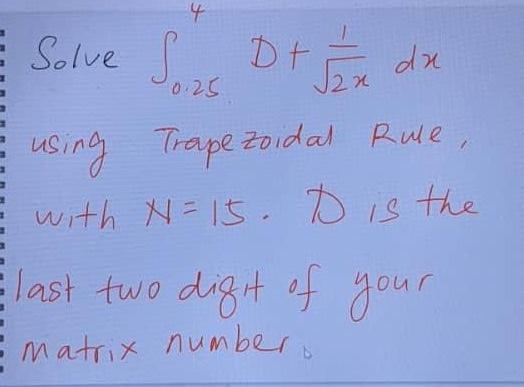 Solve ∫₀.₂₅⁴ D + 1/√2x dx
using Trapezoidal Rule,
with N = 15. D is the
last two digit of your
matrix number.